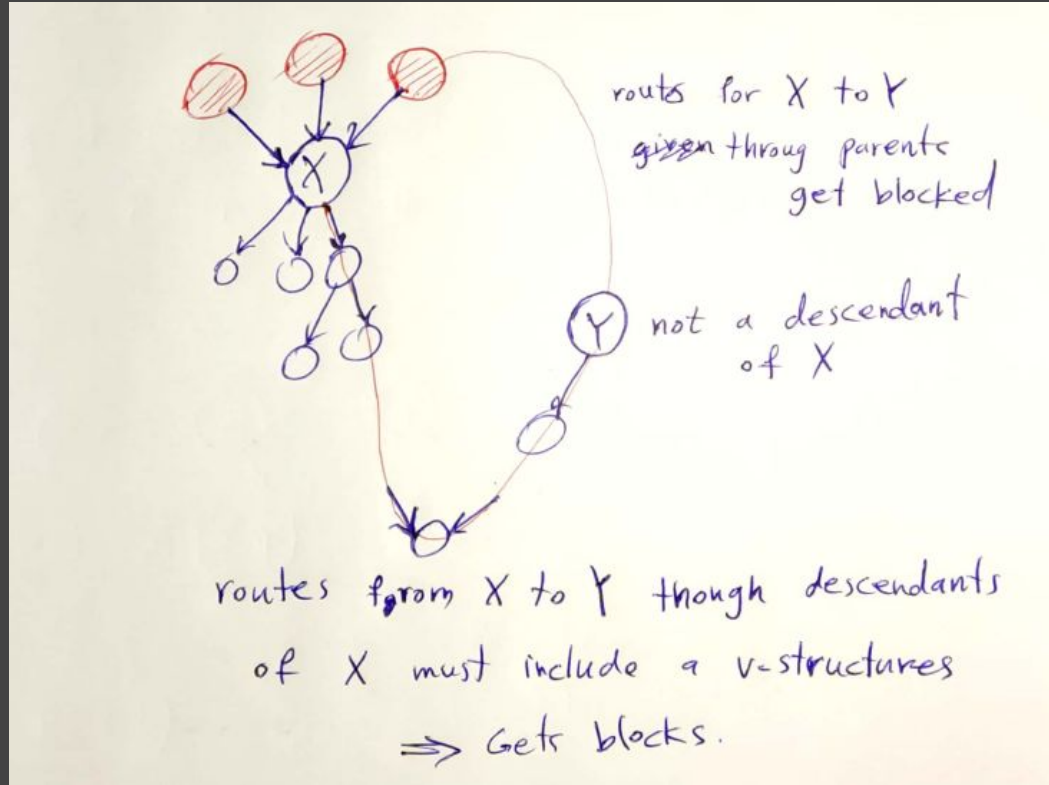 X
routs for X to Y
given throug parents
get blocked
Y
not a descendant
of X
routes from X to Y though descendants
of X must include a v-structures
⇒ Gets blocks.